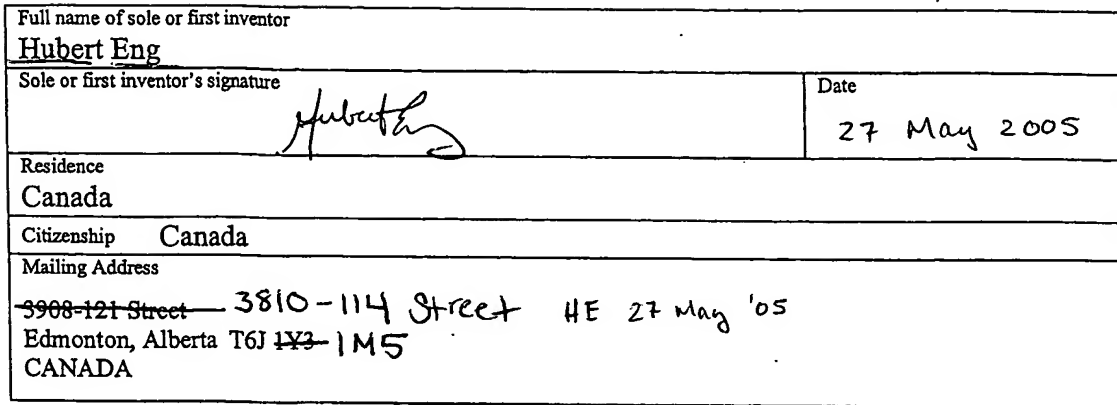 Full name of sole or first inventor
Hubert Eng
Sole or first inventor's signature
Hubert Eng
Date
27 May 2005
Residence
Canada
Citizenship Canada
Mailing Address
3908-121 Street 3810-114 Street HE 27 May '05
Edmonton, Alberta T6J 1Y3 1M5
CANADA